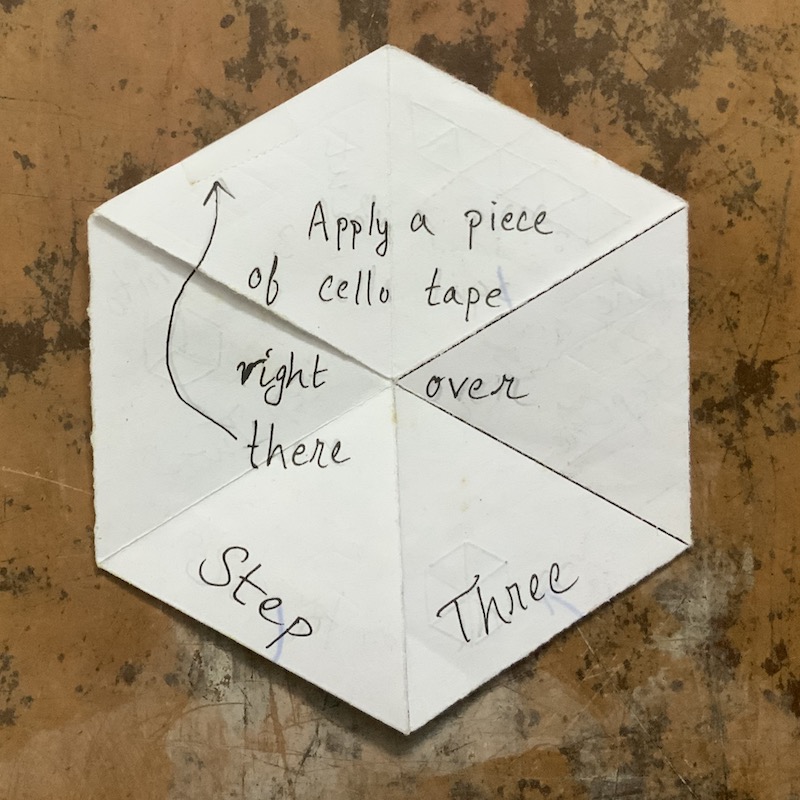 Apply a piece
of cello tape
right over
there
Step Three